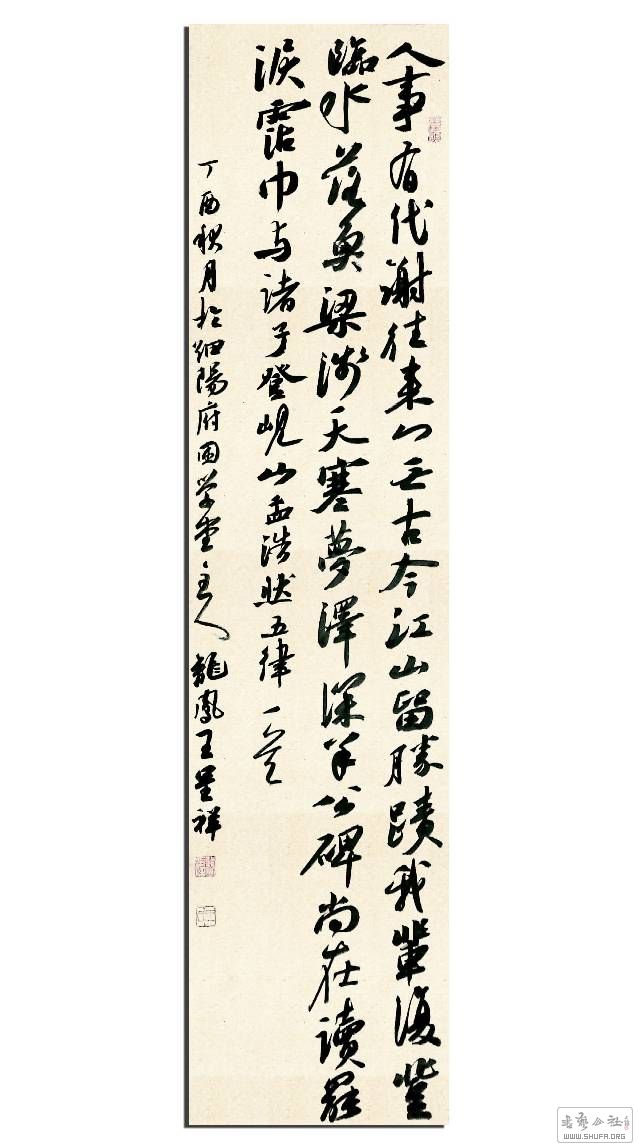 人事有代謝往来古今江山留勝蹟我輩復登
臨水落魚梁淺天寒夢澤深羊公碑尚在讀罷
淚霑巾与諸子登峴山孟浩然五律一首
丁酉秋月於细陽府国学堂主人龍鳳王呈祥
书艺公社
WWW.SHUFA.ORG